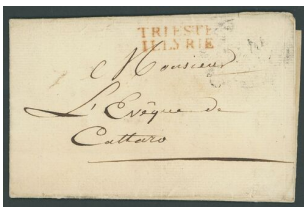 TRIESTE
ILLYRIE
Monsieur
L'Evêque de
Cattaro